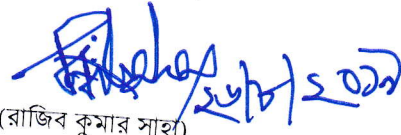 ২৬/৮/২০১৯
(রাজিব কুমার সাহা)